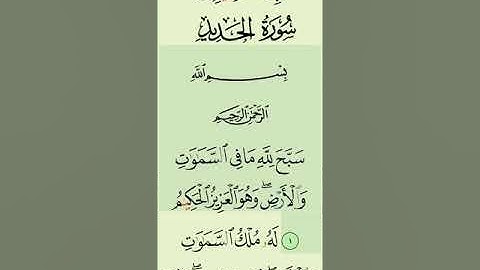 سُورَةُ الحَدِيدِ
بِسْمِ ٱللَّهِ
ٱلرَّحْمَٰنِ ٱلرَّحِيمِ
سَبَّحَ لِلَّهِ مَا فِي ٱلسَّمَٰوَٰتِ
وَٱلْأَرْضِۖ وَهُوَ ٱلْعَزِيزُ ٱلْحَكِيمُ
١ لَهُۥ مُلْكُ ٱلسَّمَٰوَٰتِ